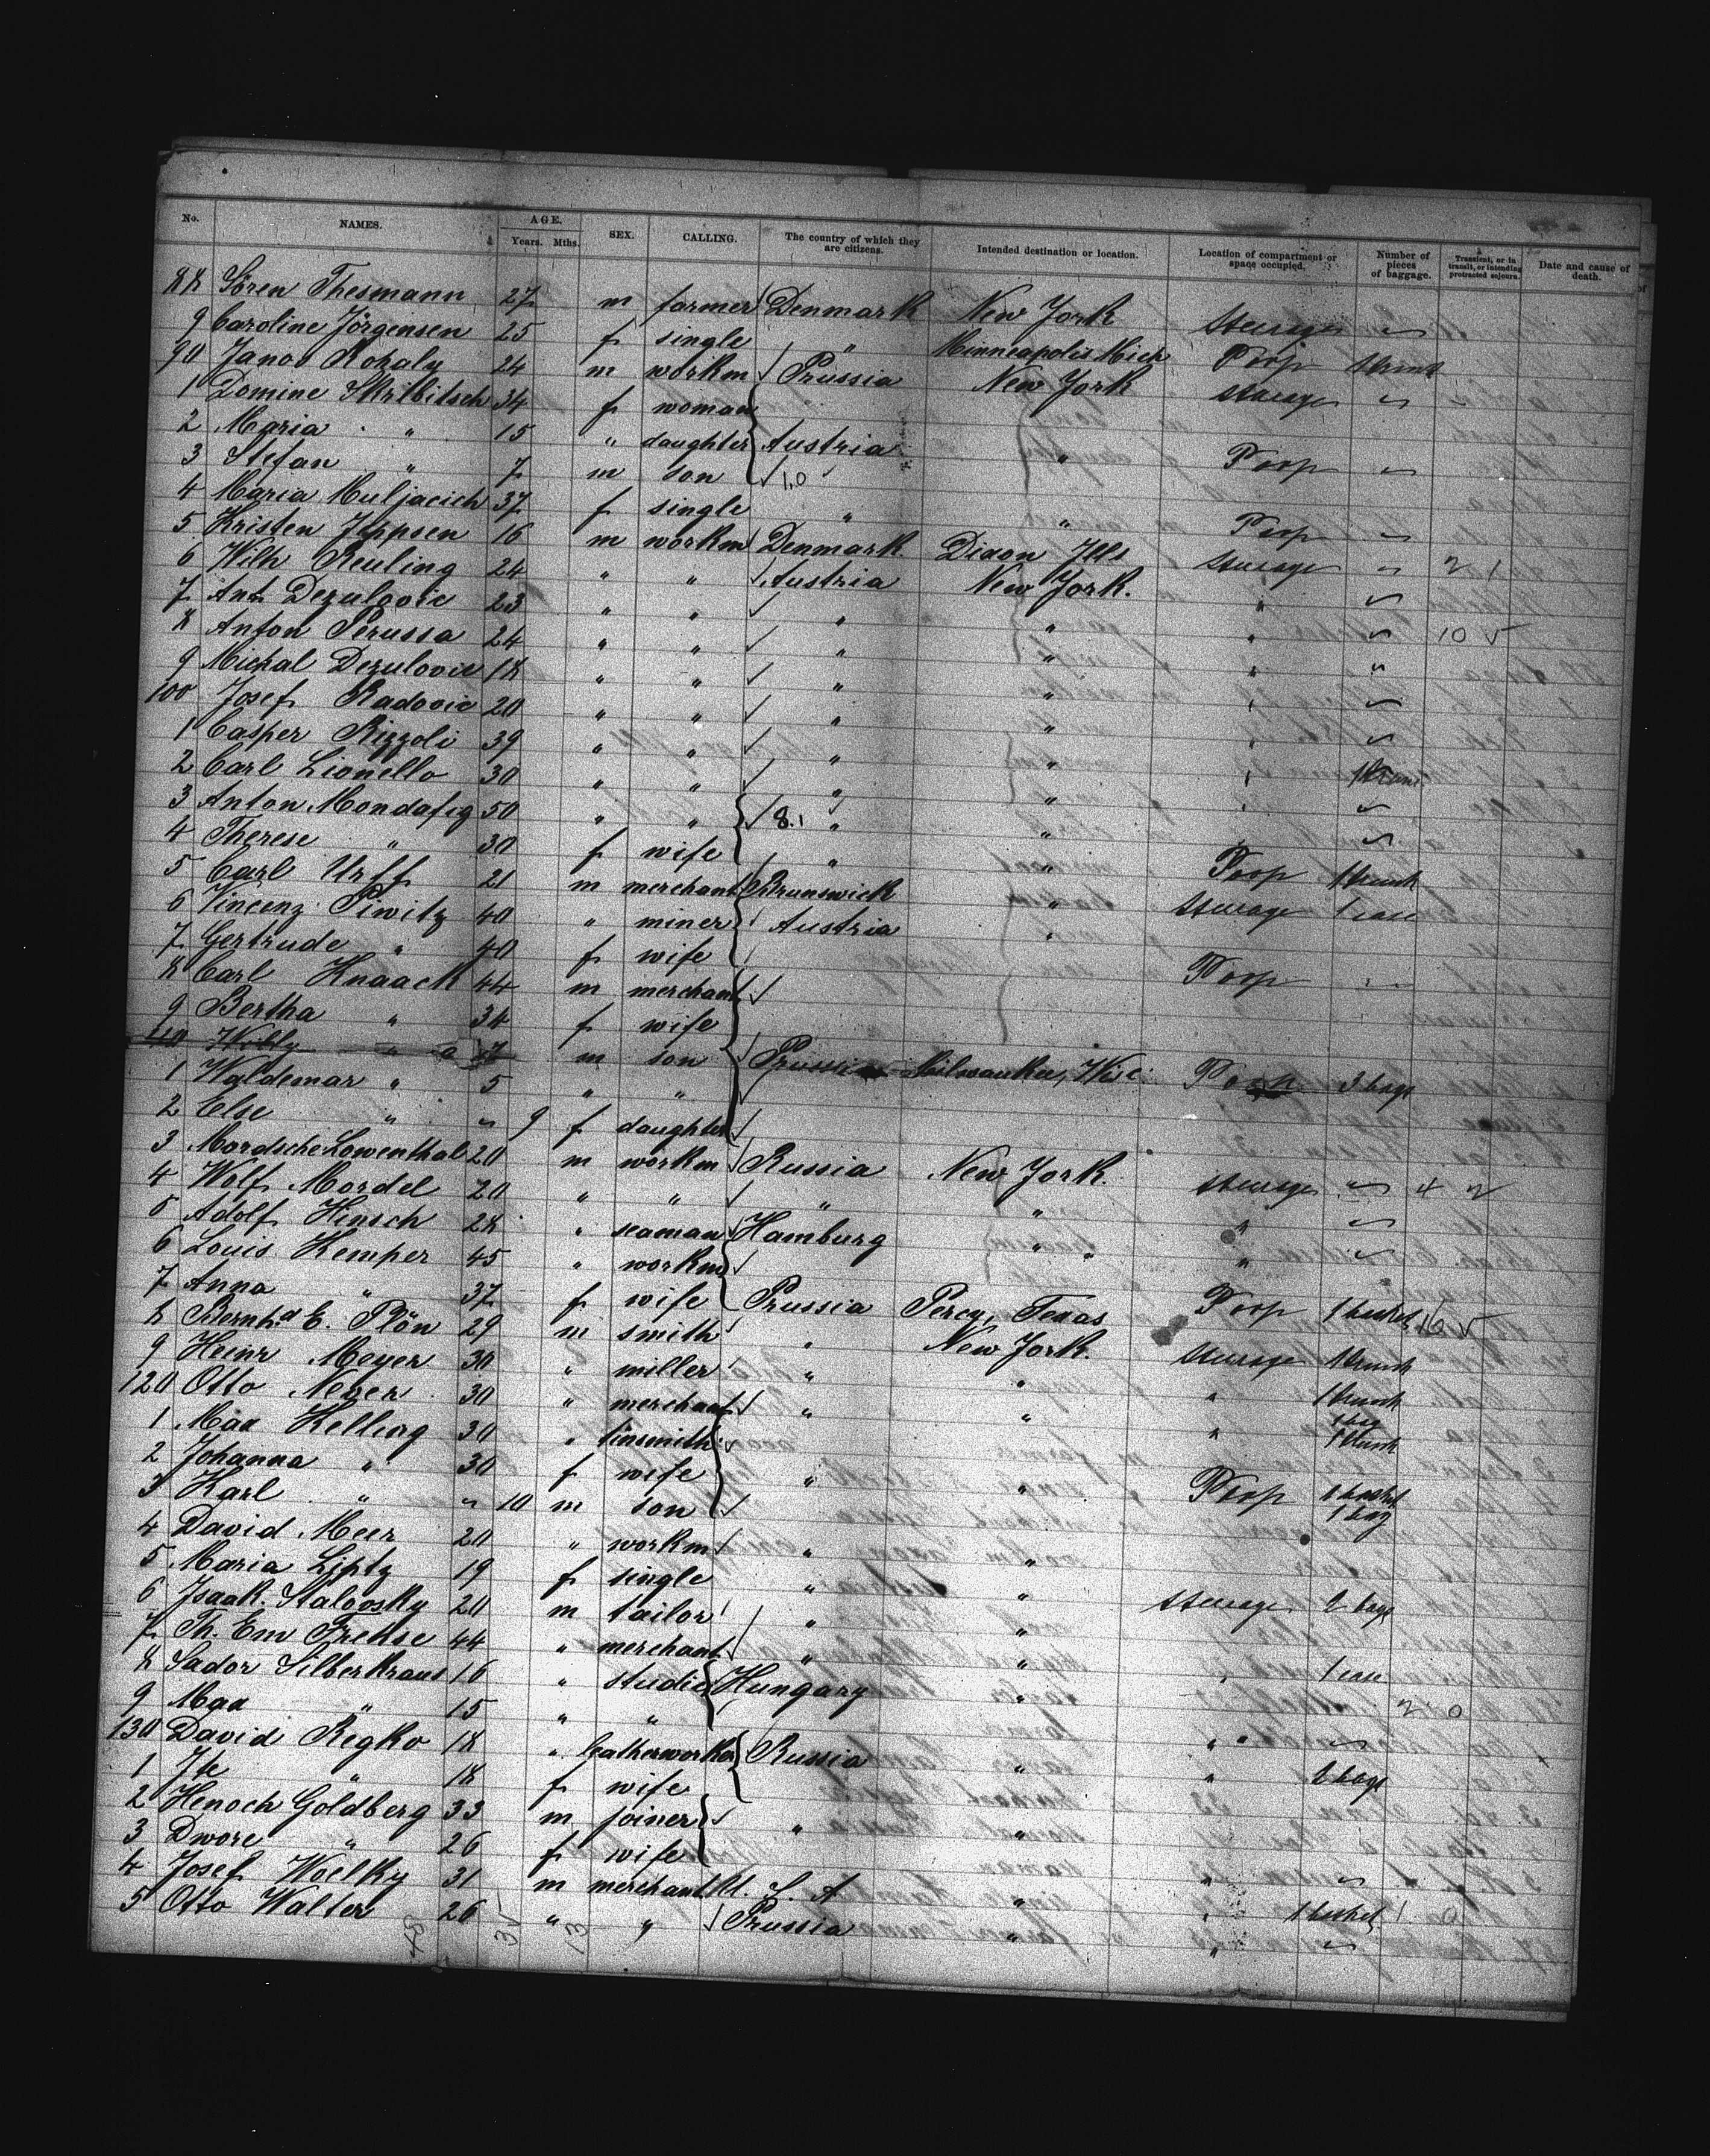 No. NAMES. AGE. Years. Mths. SEX. CALLING. The country of which they are citizens. Intended destination or location. Location of compartment or space occupied. Number of pieces of baggage. Transient, or in transit, or intending protracted sojourn. Date and cause of death.
88 Sören Thesmann 27 m farmer Denmark New York Steerage "
9 Caroline Jörgensen 25 f single " Minneapolis Mich Poop 1 trunk
90 Janos Rokaly 24 m workm Prussia New York Steerage "
1 Domine 34 f woman
2 Maria " 15 " daughter Austria " Poop "
3 Stefan " 7 m son 1,0
4 Maria Muljacich 37 f single " " Poop "
5 Kristen Jeppsen 16 m workm Denmark Dixon Ills Steerage " 2 1
6 Wilh Reuling 24 " " Austria New York. " "
7 Ant Dezulovic 23 " " " " " " 10 5
8 Anton Perussa 24 " " " " " "
9 Michal Dezulovic 18 " " " " " "
100 Josef Radovic 20 " " " " " "
1 Casper Rizzoli 39 " " " " " 1 trunk
2 Carl Lionello 30 " " " " " "
3 Anton Mondafig 50 " " 8.1 " " "
4 Therese " 30 f wife " " Poop 1 trunk
5 Carl Urff 21 m merchant Brunswick " Steerage 1 case
6 Vincenz Piwitz 40 " miner Austria "
7 Gertrude " 40 f wife Poop "
8 Carl Knaack 44 m merchant
9 Bertha " 34 f wife
40 Willy " 7 m son Prussia Milwaukee, Wisc. Poop 3 bags
1 Waldemar " 5 " "
2 Else " " 9 f daughter
3 Mordsche Lowenthal 20 m workm Russia New York Steerage " 4 2
4 Wolf Mordel 20 " " " " " "
5 Adolf Hinsch 28 " seaman Hamburg " " " "
6 Louis Kemper 45 " workm
7 Anna " 37 f wife Prussia Percy, Texas Poop 1 basket 16 5
8 Bernhd E. Plön 29 m smith " New York. Steerage 1 trunk
9 Heinr Meyer 30 " miller " " " 1 trunk
120 Otto Neyer 30 " merchant " " " 1 bag 1 trunk
1 Max Kelling 30 " tinsmith
2 Johanna " 30 f wife " " Poop 1 basket 1 bag
3 Karl " " 10 m son
4 David Meer 20 " workm " "
5 Maria Liptz 19 f single " " Steerage 2 bags
6 Isaak Stalovsky 20 m tailor " "
7 Th. Em Frekse 44 " merchant " " " 1 case
8 Sador Silberkraus 16 " studie Hungary " 2 0
9 Max " 15 " " " "
130 David Regko 18 " leatherworker Russia " " 2 bags
1 Ite " 18 f wife
2 Henoch Goldberg 33 m joiner " "
3 Dwore " 26 f wife " "
4 Josef Woelky 31 m merchant U. S. A " " 1 basket 1 0
5 Otto Walter 26 " " Prussia " " "
48 35 13